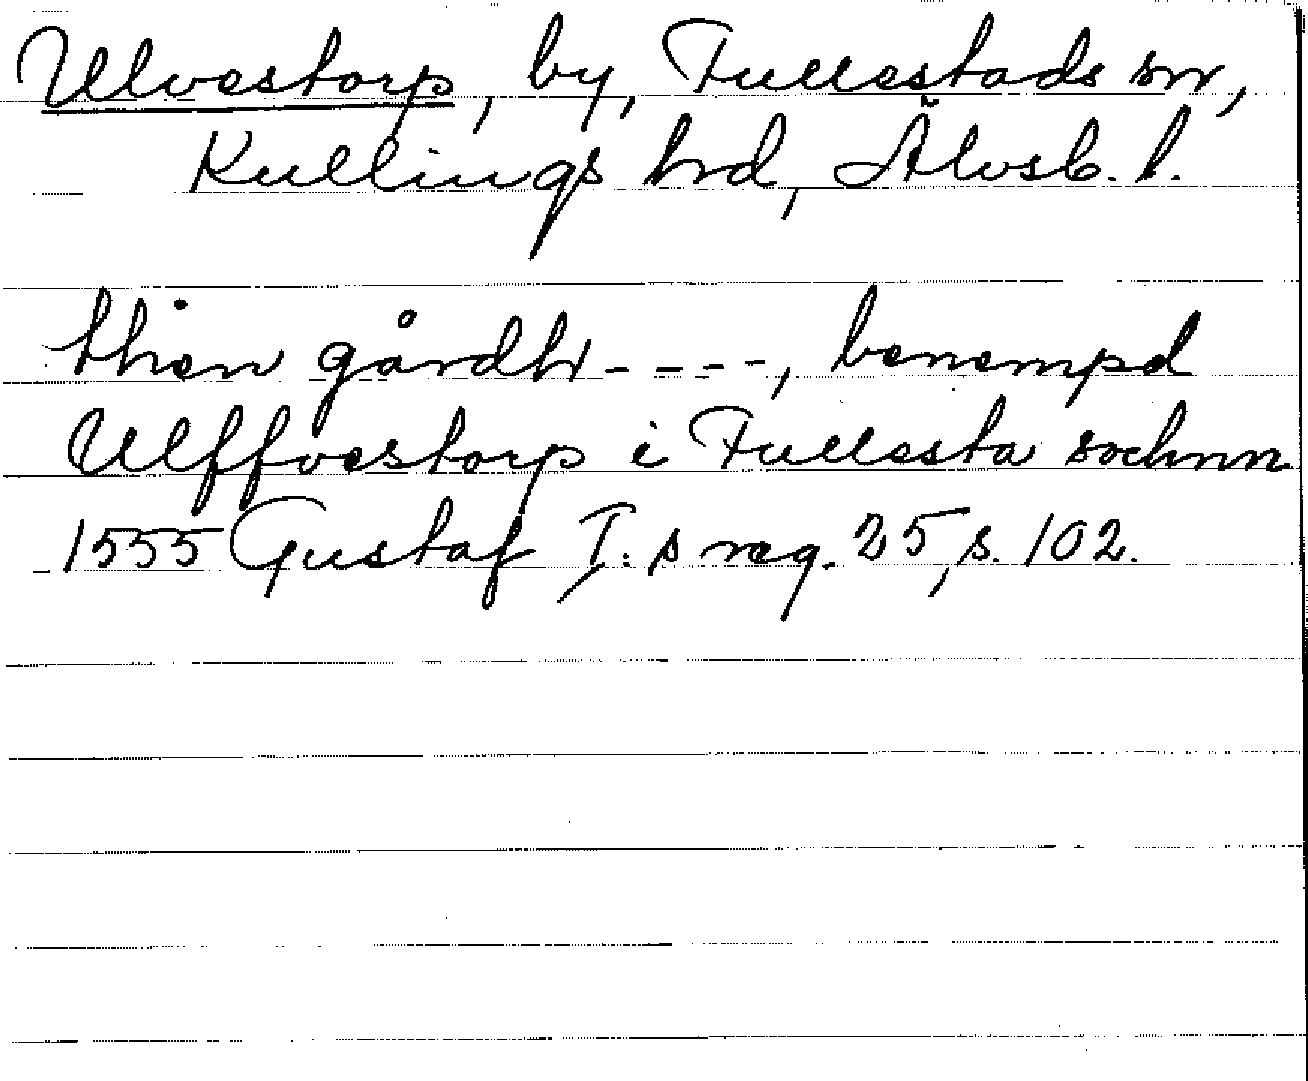 Ulvestorp, by, Fullestads sn,
Kullings hd, Älvsb. l.
then gårdh - - - -, benempd
Ulffvestorp i Fullesta sochnn
1555 Gustaf I: s reg. 25, s. 102.